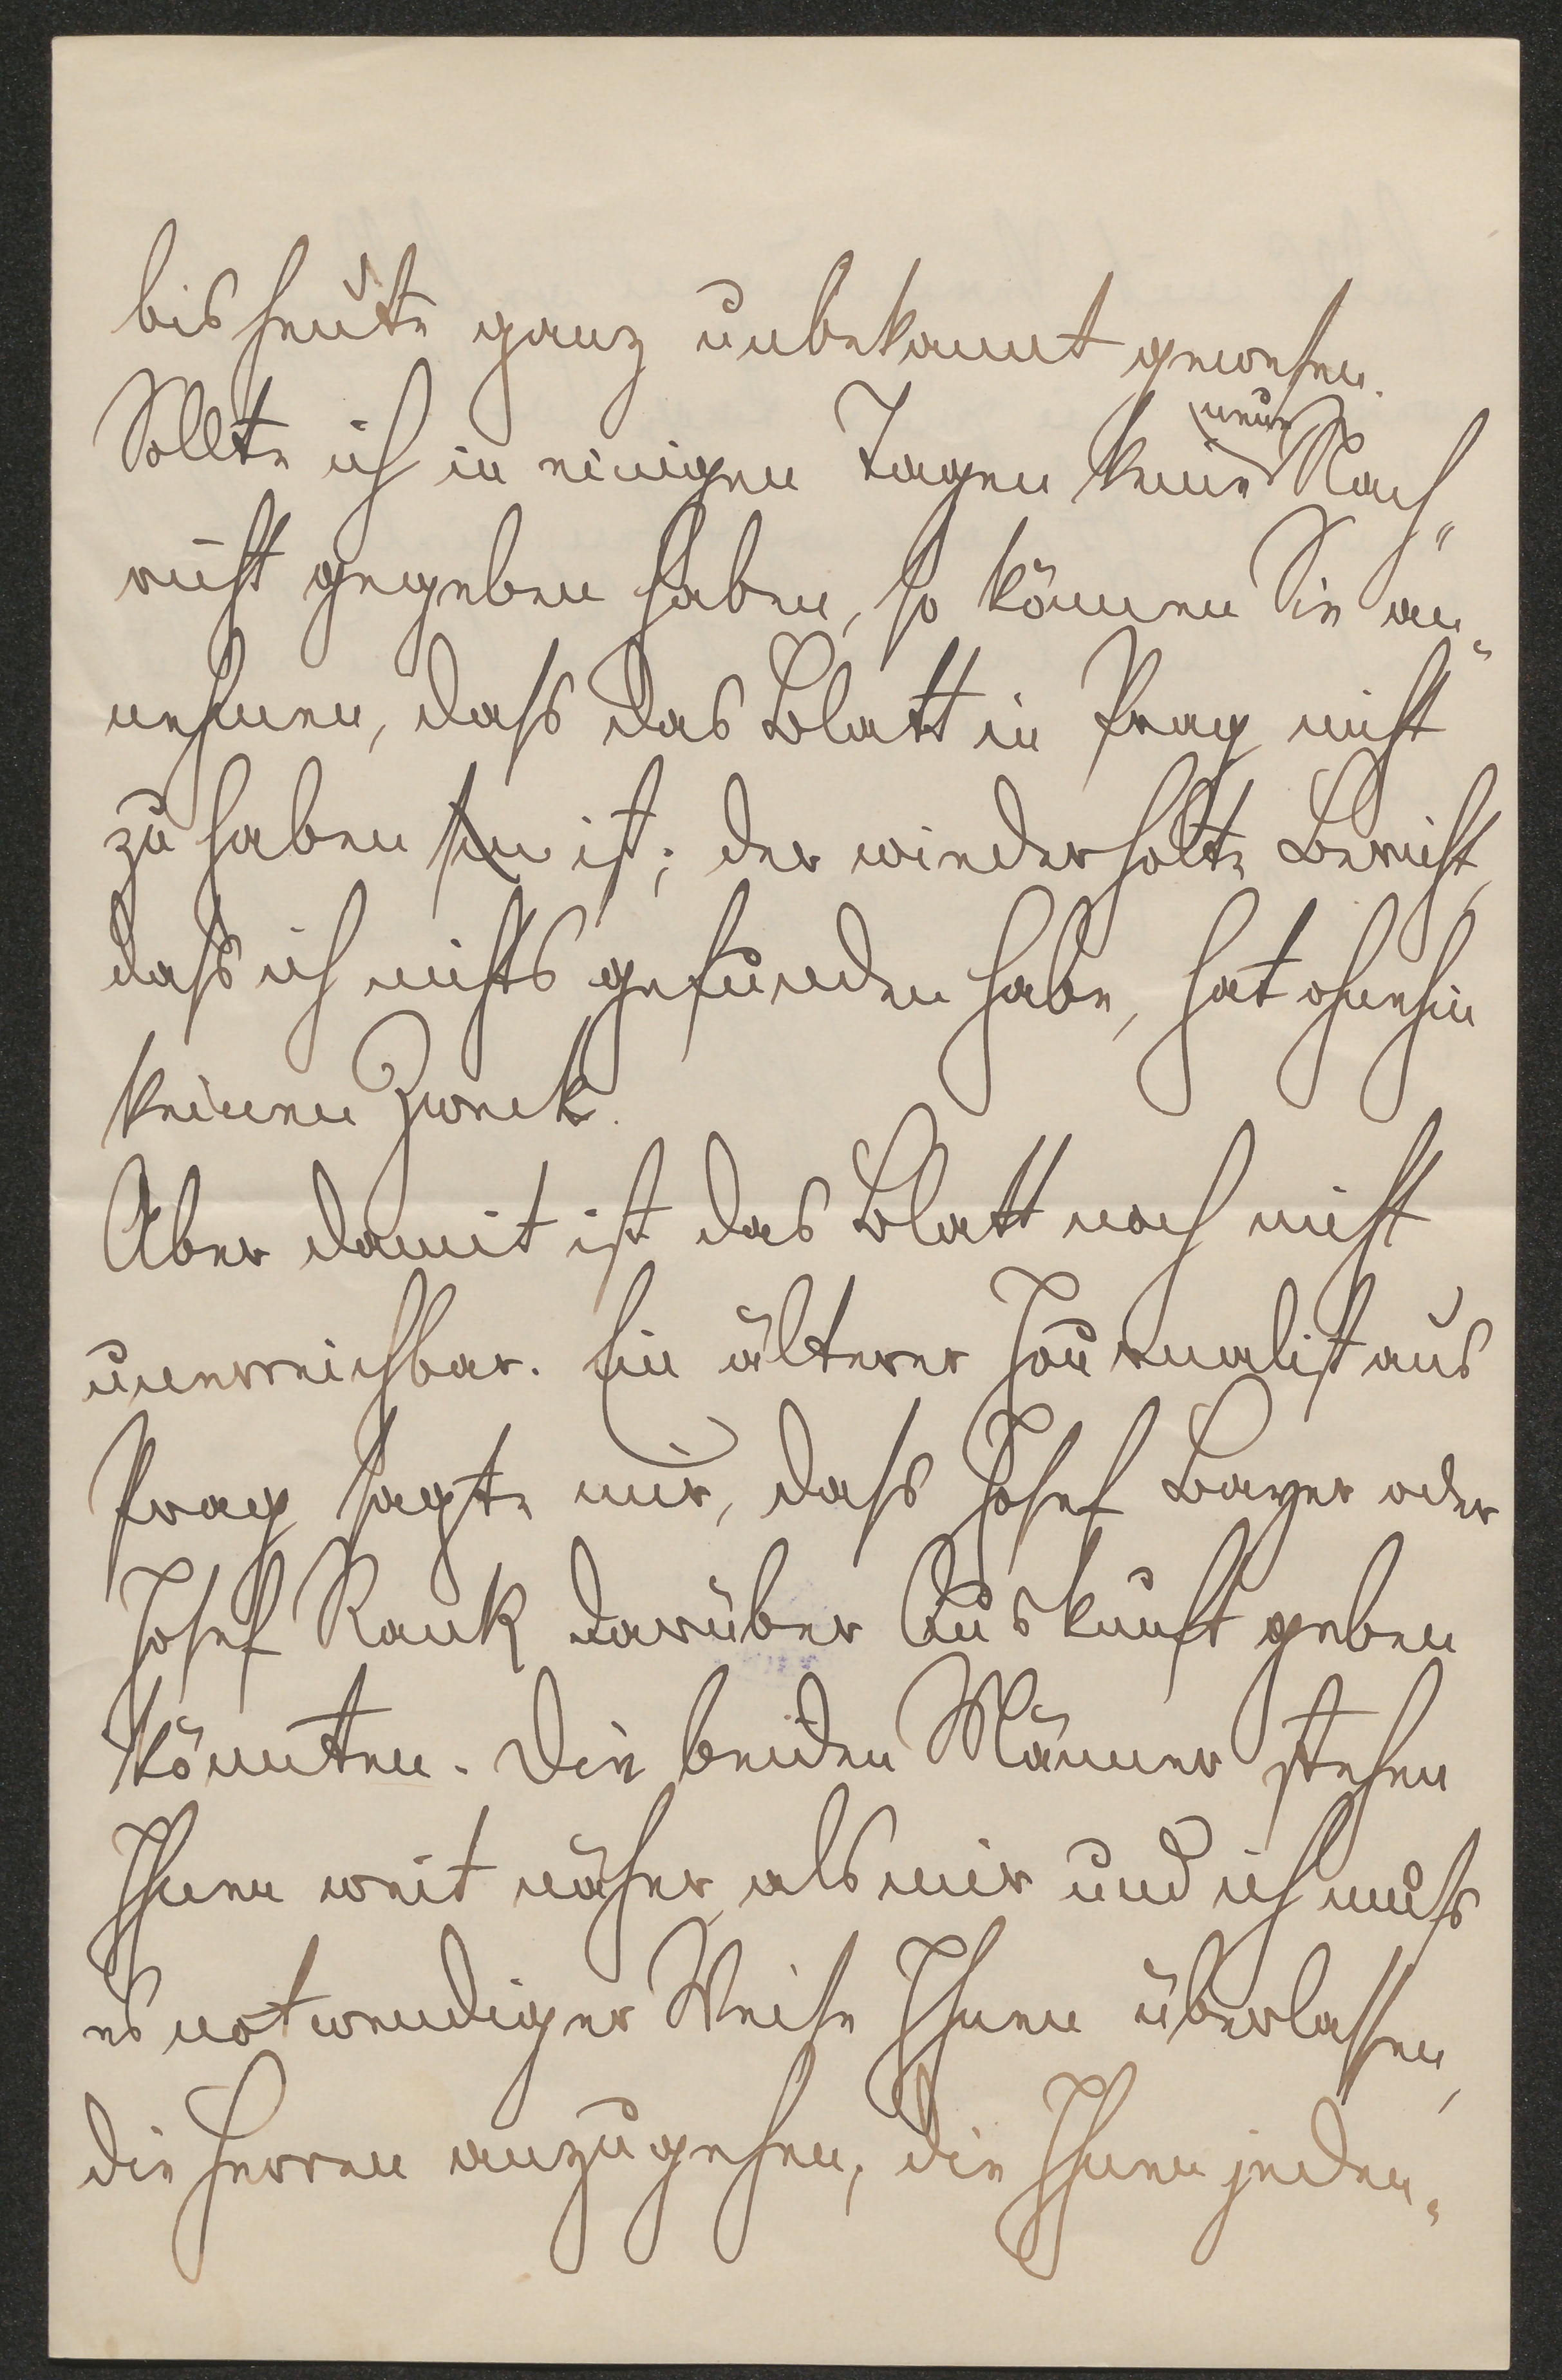 bis heute ganz unbekannt gewesen.
Sollte ich in einigen Tagen keine neue Nach-
richt gegeben haben, so können Sie an-
nehmen, dass das Blatt in Prag nicht
zu haben ist; der wiederholte Bericht,
dass ich nichts gefunden habe, hat ohnehin
keinen Zweck.
Aber damit ist das Blatt noch nicht
unerreichbar. Ein älterer Journalist aus
Prag sagte mir, dass Josef Bayer oder
Josef Rank darüber Auskunft geben
könnten. Die beiden Männer stehen
Ihnen weit näher, als mir und ich muß
es notwendiger Weise Ihnen überlassen,
die Herren anzugehen, die Ihnen jeden-